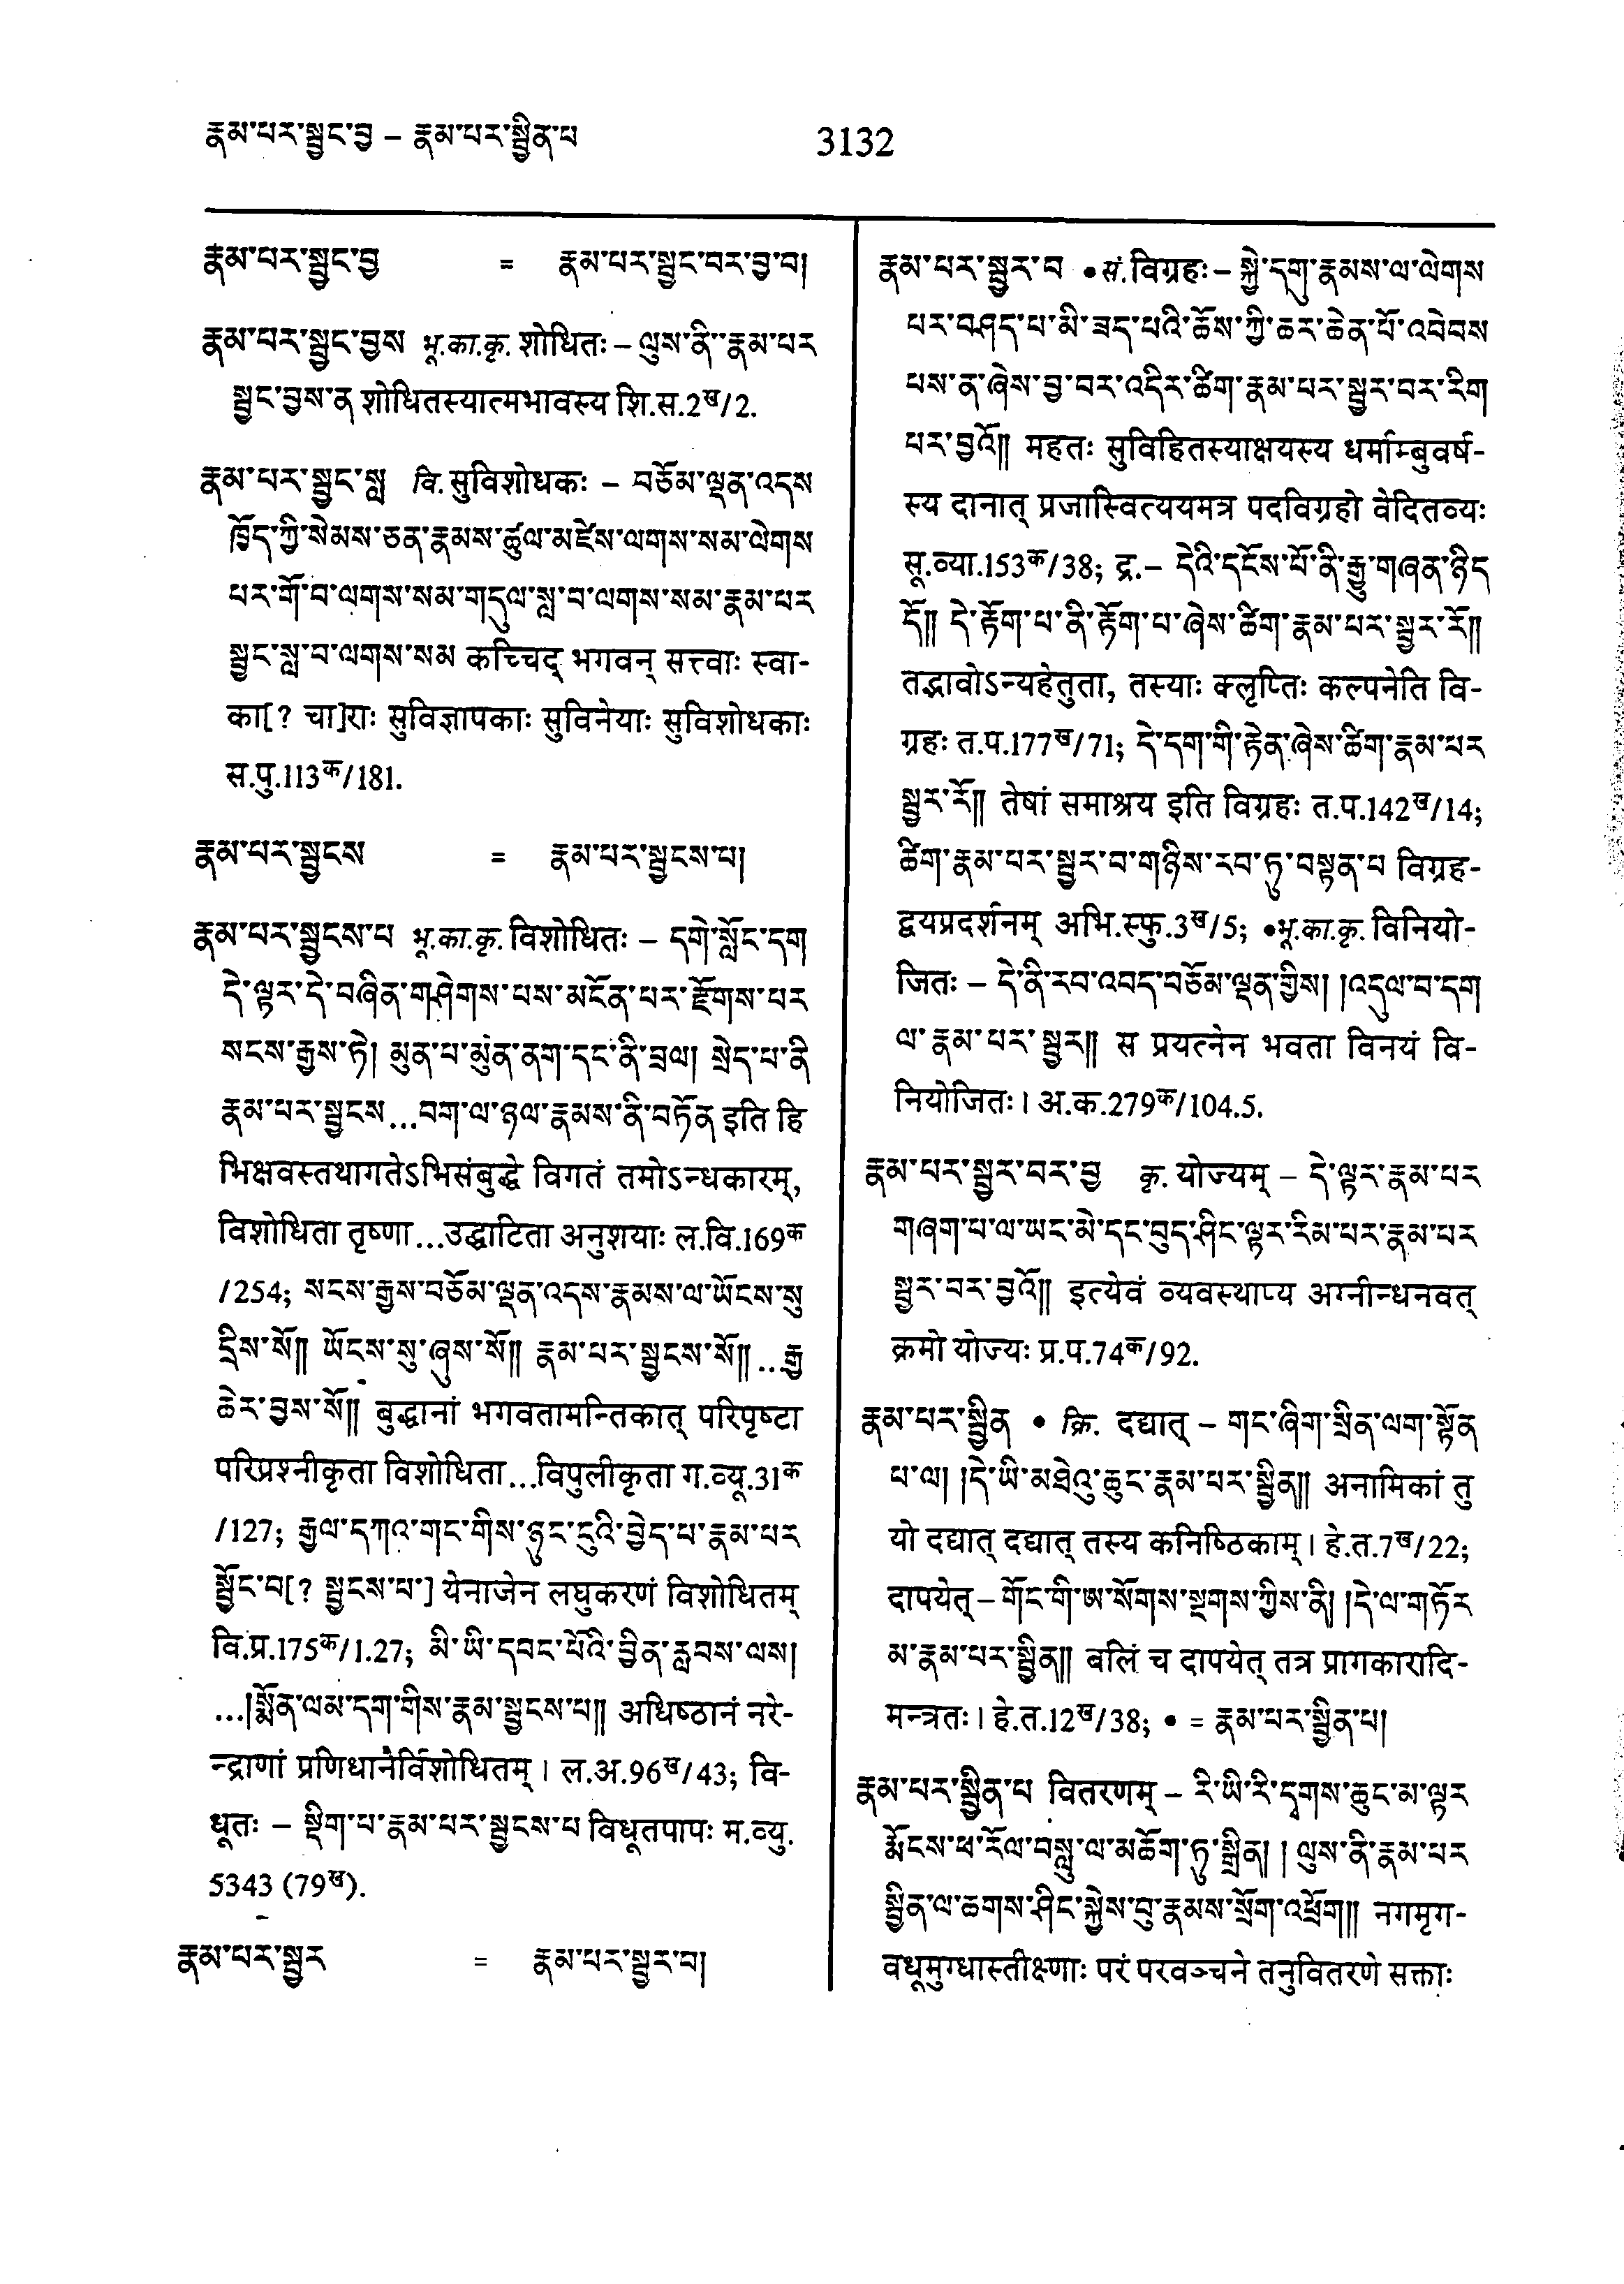 རྣམ་པར་སྦྱང་བྱ – རྣམ་པར་སྦྱིན་པ 3132
རྣམ་པར་སྦྱང་བྱ = རྣམ་པར་སྦྱང་བར་བྱ་བ།
རྣམ་པར་སྦྱང་བྱས भू.का.कृ. शोधितः – ལུས་ནི་་རྣམ་པར
སྦྱང་བྱས་ན शोधितस्यात्मभावस्य शि.स.2ख/2.
རྣམ་པར་སྦྱང་སླ वि. सुविशोधकः – བཅོམ་ལྡན་འདས
ཁྱོད་ཀྱི་སེམས་ཅན་རྣམས་ཚུལ་མཛེས་ལགས་སམ་ལེགས
པར་གོ་བ་ལགས་སམ་གདུལ་སླ་བ་ལགས་སམ་རྣམ་པར
སྦྱང་སླ་བ་ལགས་སམ कच्चिद् भगवन् सत्त्वाः स्वा-
का[? चा]राः सुविज्ञापकाः सुविनेयाः सुविशोधकाः
स.पु.113क/181.
རྣམ་པར་སྦྱངས = རྣམ་པར་སྦྱངས་པ།
རྣམ་པར་སྦྱངས་པ भू.का.कृ. विशोधितः – དགེ་སློང་དག
དེ་ལྟར་དེ་བཞིན་གཤེགས་པས་མངོན་པར་རྫོགས་པར
སངས་རྒྱས་ཏེ། མུན་པ་མུན་ནག་དང་ནི་བྲལ། སྲེད་པ་ནི
རྣམ་པར་སྦྱངས...བག་ལ་ཉལ་རྣམས་ནི་བཏོན इति हि
भिक्षवस्तथागतेऽभिसंबुद्धे विगतं तमोऽन्धकारम्,
विशोधिता तृष्णा...उद्घाटिता अनुशयाः ल.वि.169क
/254; སངས་རྒྱས་བཅོམ་ལྡན་འདས་རྣམས་ལ་ཡོངས་སུ
དྲིས་སོ།། ཡོངས་སུ་ཞུས་སོ།། རྣམ་པར་སྦྱངས་སོ།། ...རྒྱ
ཆེར་བྱས་སོ།། बुद्धानां भगवतामन्तिकात् परिपृष्टा
परिप्रश्नीकृता विशोधिता...विपुलीकृता ग.व्यू.31क
/127; རྒྱལ་དཀའ་གང་གིས་ཉུང་ངུའི་བྱེད་པ་རྣམ་པར
སྦྱོང་བ[? སྦྱངས་པ་] येनाजेन लघुकरणं विशोधितम्
वि.प्र.175क/1.27; མི་ཡི་དབང་པོའི་བྱིན་རླབས་ལས།
...།སྨོན་ལམ་དག་གིས་རྣམ་སྦྱངས་པ།། अधिष्ठानं नरे-
न्द्राणां प्रणिधानैर्विशोधितम्। ल.अ.96ख/43; वि-
धूतः – སྡིག་པ་རྣམ་པར་སྦྱངས་པ विधूतपापः म.व्यु.
5343 (79ख).
རྣམ་པར་སྦྱར = རྣམ་པར་སྦྱར་བ།
རྣམ་པར་སྦྱར་བ •सं. विग्रहः – སྐྱེ་དགུ་རྣམས་ལ་ལེགས
པར་བཤད་པ་མི་ཟད་པའི་ཆོས་ཀྱི་ཆར་ཆེན་པོ་འབེབས
པས་ན་ཞེས་བྱ་བར་འདིར་ཚིག་རྣམ་པར་སྦྱར་བར་རིག
པར་བྱའོ།། महतः सुविहितस्याक्षयस्य धर्माम्बुवर्ष-
स्य दानात् प्रजास्वित्ययमत्र पदविग्रहो वेदितव्यः
सू.व्या.153क/38; द्र.– དེའི་དངོས་པོ་ནི་རྒྱུ་གཞན་ཉིད
དོ།། དེ་རྟོག་པ་ནི་རྟོག་པ་ཞེས་ཚིག་རྣམ་པར་སྦྱར་རོ།།
तद्भावोऽन्यहेतुता, तस्याः क्लृप्तिः कल्पनेति वि-
ग्रहः त.प.177ख/71; དེ་དག་གི་རྟེན་ཞེས་ཚིག་རྣམ་པར
སྦྱར་རོ།། तेषां समाश्रय इति विग्रहः त.प.142ख/14;
ཚིག་རྣམ་པར་སྦྱར་བ་གཉིས་རབ་ཏུ་བསྟན་པ विग्रह-
द्वयप्रदर्शनम् अभि.स्फु.3ख/5; •भू.का.कृ. विनियो-
जितः – དེ་ནི་རབ་འབད་བཅོམ་ལྡན་གྱིས། །འདུལ་བ་དག
ལ་རྣམ་པར་སྦྱར།། स प्रयत्नेन भवता विनयं वि-
नियोजितः। अ.क.279क/104.5.
རྣམ་པར་སྦྱར་བར་བྱ कृ. योज्यम् – དེ་ལྟར་རྣམ་པར
གཞག་པ་ལ་ཡང་མེ་དང་བུད་ཤིང་ལྟར་རིམ་པར་རྣམ་པར
སྦྱར་བར་བྱའོ།། इत्येवं व्यवस्थाप्य अग्नीन्धनवत्
क्रमो योज्यः प्र.प.74क/92.
རྣམ་པར་སྦྱིན • क्रि. दद्यात् – གང་ཞིག་སྲིན་ལག་སྟོན
པ་ལ། །དེ་ཡི་མཐེའུ་ཆུང་རྣམ་པར་སྦྱིན།། अनामिकां तु
यो दद्यात् दद्यात् तस्य कनिष्ठिकाम्। हे.त.7ख/22;
दापयेत् – གོང་གི་ཨ་སོགས་སྔགས་ཀྱིས་ནི། །དེ་ལ་གཏོར
མ་རྣམ་པར་སྦྱིན།། बलिं च दापयेत् तत्र प्रागकारादि-
मन्त्रतः। हे.त.12ख/38; • = རྣམ་པར་སྦྱིན་པ།
རྣམ་པར་སྦྱིན་པ वितरणम् – རི་ཡི་རི་དྭགས་ཆུང་མ་ལྟར
རྨོངས་ཕ་རོལ་བསླུ་ལ་མཆོག་ཏུ་སྒྲིན། །ལུས་ནི་རྣམ་པར
སྦྱིན་ལ་ཆགས་ཤིང་སྐྱེས་བུ་རྣམས་སྲོག་འཕྲོག།། नगमृग-
वधूमुग्धास्तीक्ष्णाः परं परवञ्चने तनुवितरणे सक्ताः